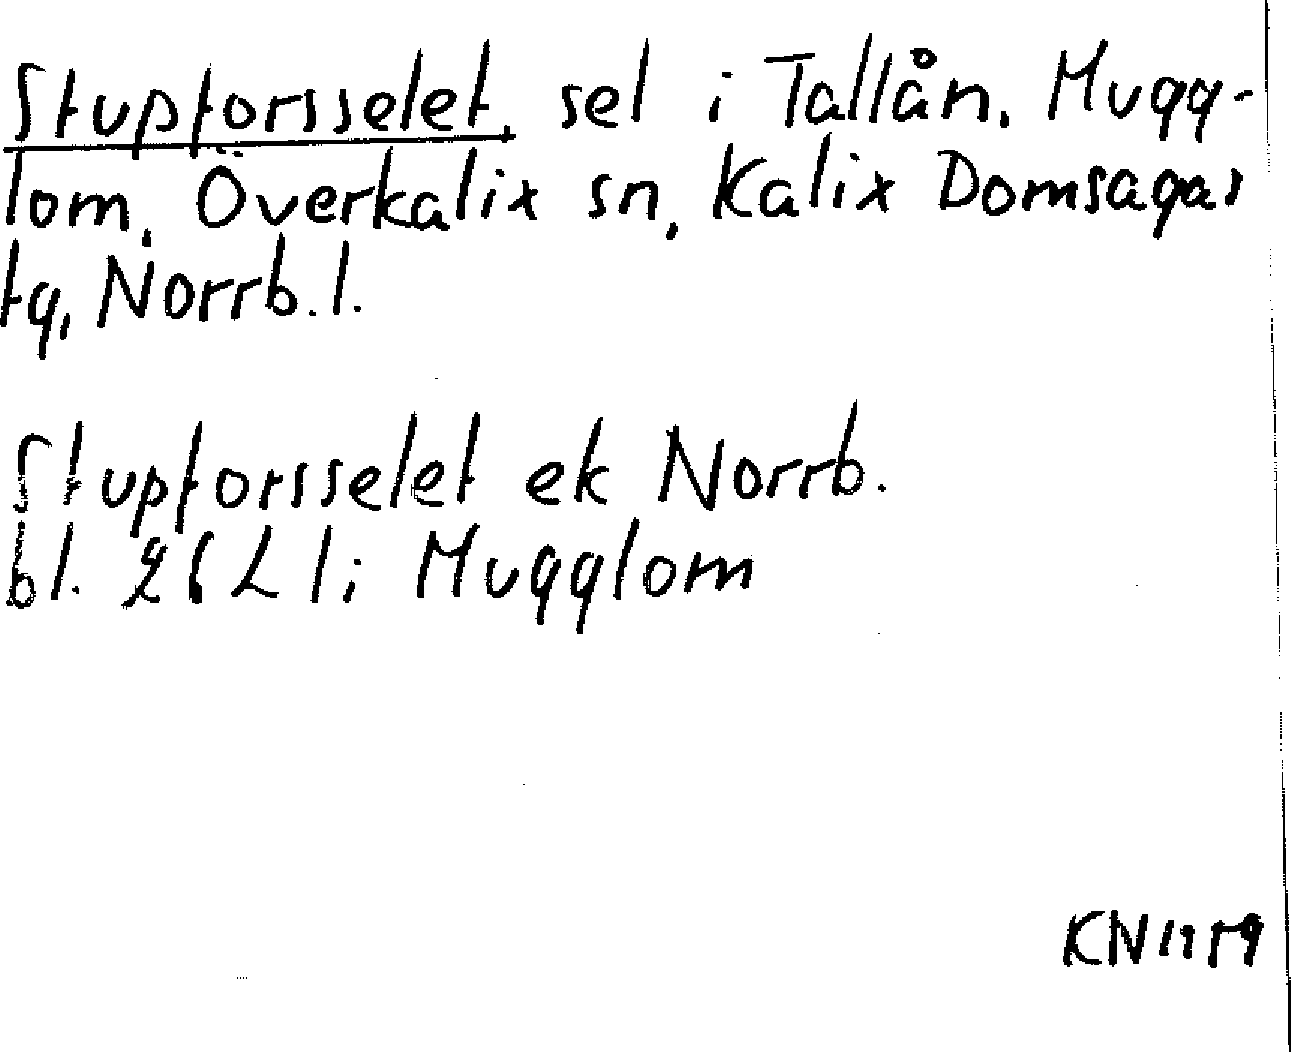 Stupforsselet, sel i Tallån, Mugg-
lom, Överkalix sn, Kalix Domsagas
tg, Norrb. l.
Stupforsselet ek Norrb.
bl. 26 L l; Mugglom